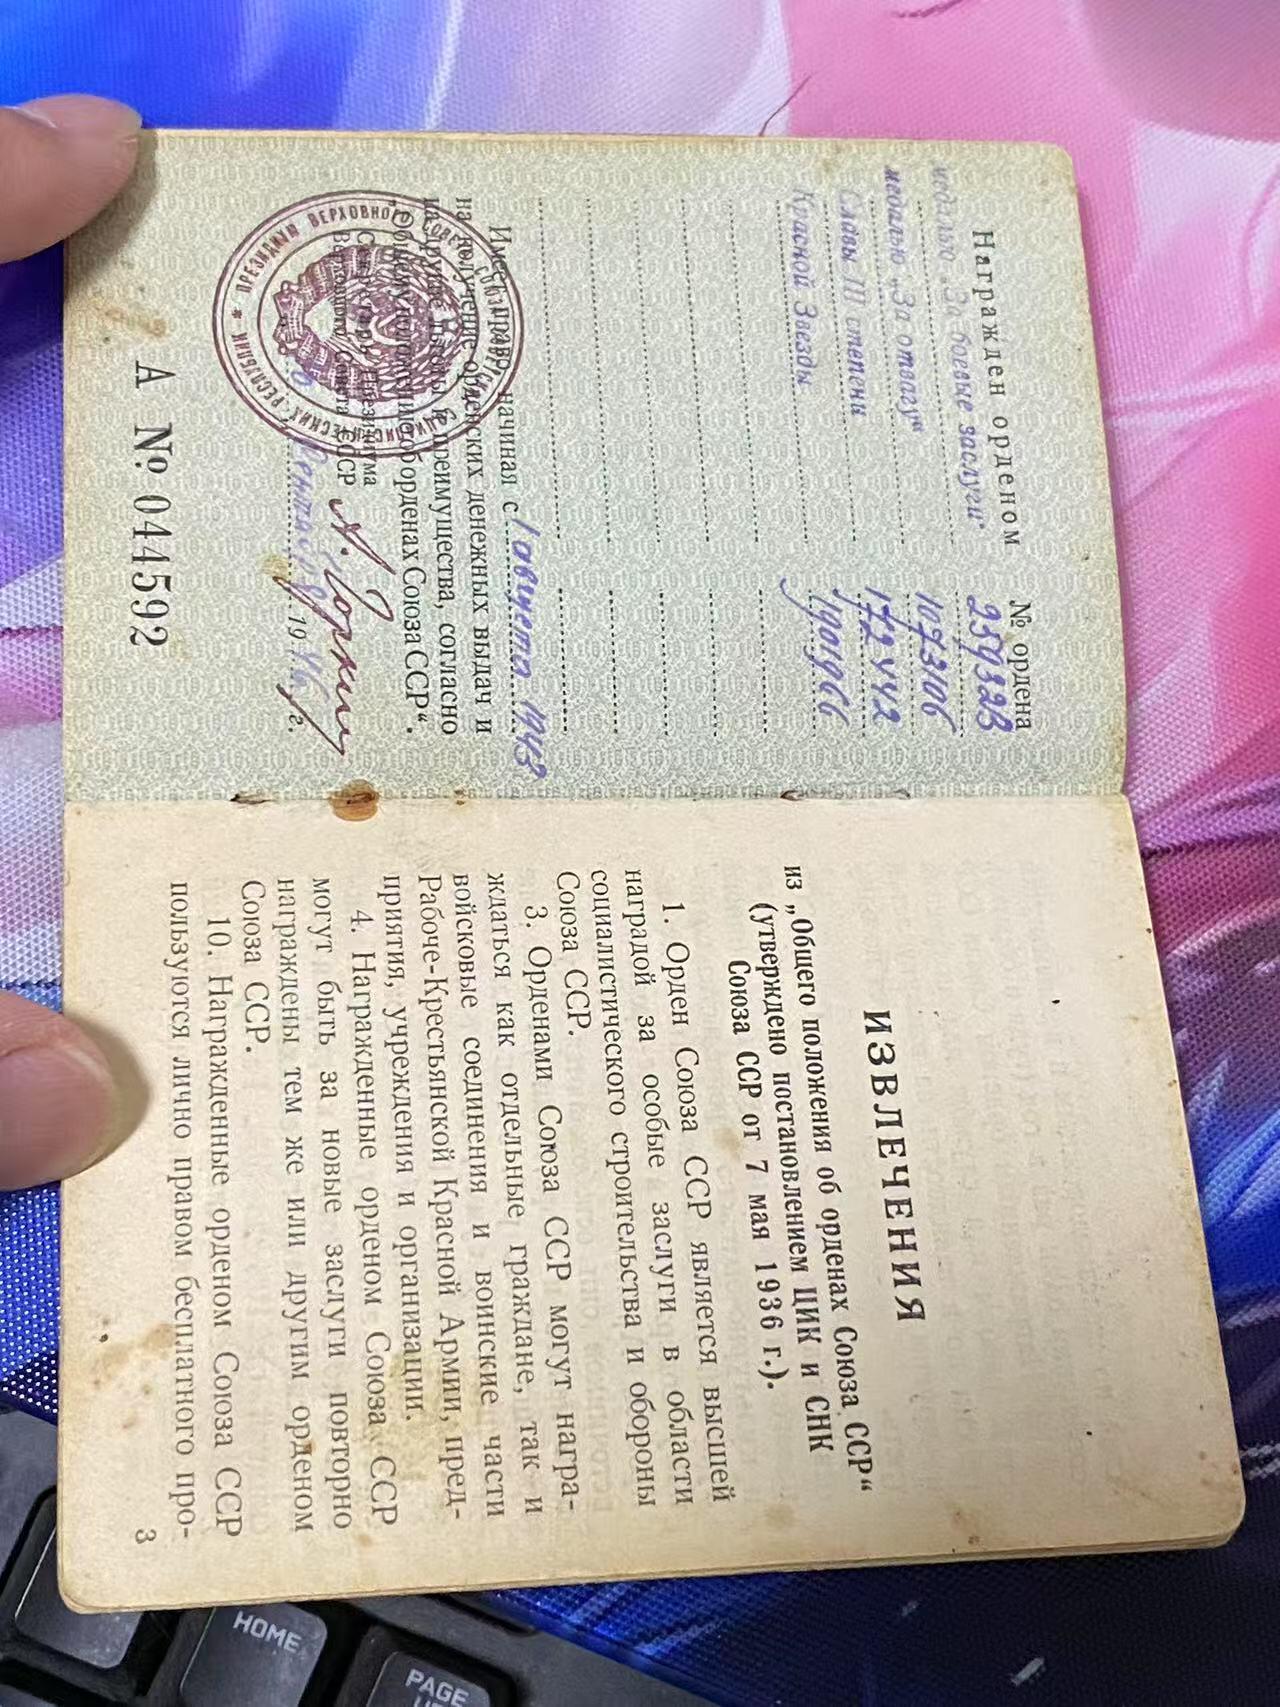 Награжден орденом № ордена
медалью „За боевые заслуги" 259328
медалью „За отвагу" 1073106
Славы III степени 172442
Красной Звезды 1901966
Имеет право, начиная с 1 августа 1943
на получение орденских денежных выдач и
на другие льготы и преимущества, согласно
„Общему положению об орденах Союза ССР“.
Секретарь Президиума
Верховного Совета СССР А. Горкин
сентября 1946 г.
ПРЕЗИДИУМ ВЕРХОВНОГО СОВЕТА СОЮЗА СОВЕТСКИХ СОЦИАЛИСТИЧЕСКИХ РЕСПУБЛИК
А № 044592
ИЗВЛЕЧЕНИЯ
из „Общего положения об орденах Союза ССР“
(утверждено постановлением ЦИК и СНК
Союза ССР от 7 мая 1936 г.).
1. Орден Союза ССР является высшей
наградой за особые заслуги в области
социалистического строительства и обороны
Союза ССР.
3. Орденами Союза ССР могут награ-
ждаться как отдельные граждане, так и
войсковые соединения и воинские части
Рабоче-Крестьянской Красной Армии, пред-
приятия, учреждения и организации.
4. Награжденные орденом Союза ССР
могут быть за новые заслуги повторно
награждены тем же или другим орденом
Союза ССР.
10. Награжденные орденом Союза ССР
пользуются лично правом бесплатного про-
3
HOME
PAGE